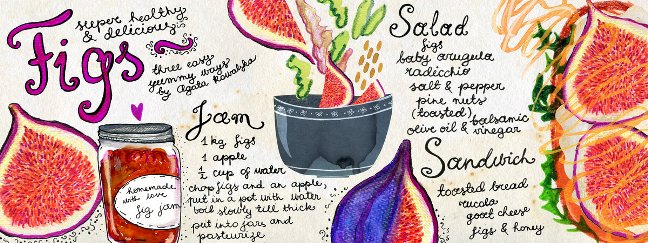 Figs
super healthy
& delicious
three easy
yummy ways
by Agata Kowalska
Jam
1 kg figs
1 apple
1/2 cup of water
chop figs and an apple
put in a pot with water
boil slowly till thick
put into jars and
pasteurize
homemade
with love
fig jam
Salad
figs
baby arugula
radicchio
salt & pepper
pine nuts
(toasted)
olive oil & balsamic
vinegar
Sandwich
toasted bread
rucola
goat cheese
figs & honey